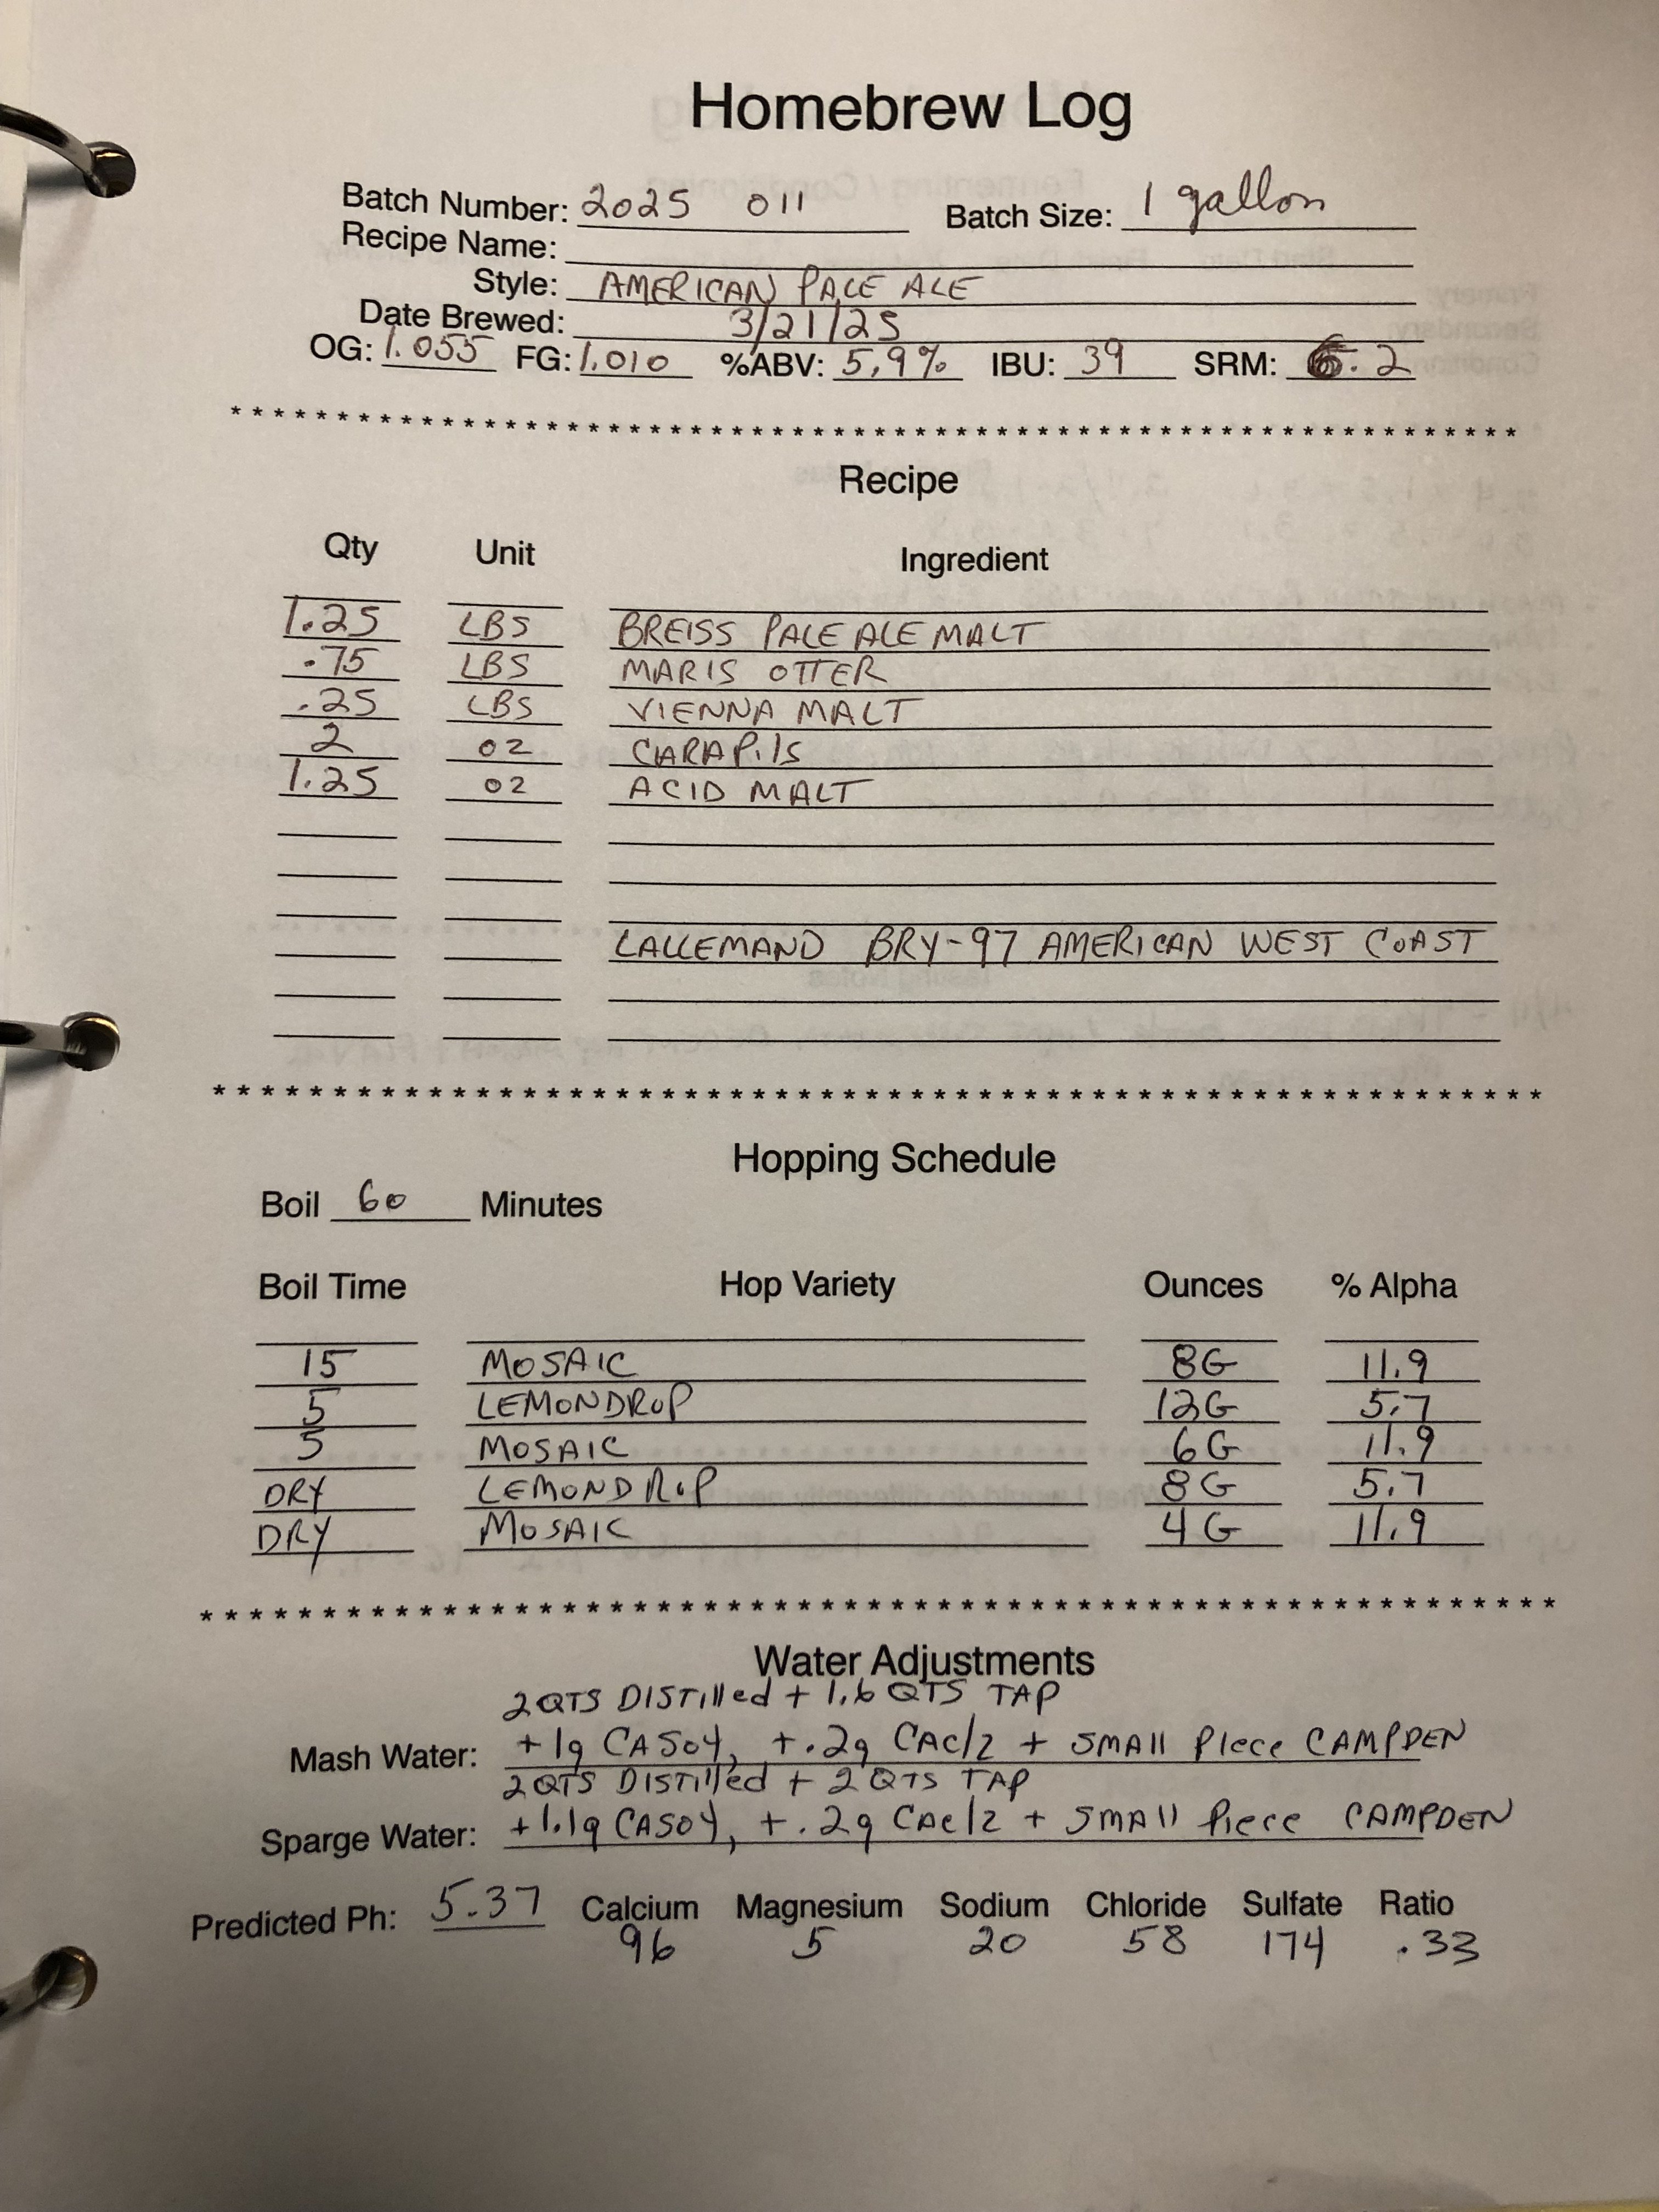 Homebrew Log
Batch Number: 2025 011 Batch Size: 1 gallon
Recipe Name:
Style: AMERICAN PALE ALE
Date Brewed: 3/21/25
OG: 1.055 FG: 1.010 %ABV: 5.9% IBU: 39 SRM: 6.2
************************************************************
Recipe
Qty Unit Ingredient
1.25 LBS BREISS PALE ALE MALT
.75 LBS MARIS OTTER
.25 LBS VIENNA MALT
2 OZ CARAPils
1.25 OZ ACID MALT
LALLEMAND BRY-97 AMERICAN WEST COAST
************************************************************
Hopping Schedule
Boil 60 Minutes
Boil Time Hop Variety Ounces % Alpha
15 MOSAIC 8G 11.9
5 LEMONDROP 12G 5.7
5 MOSAIC 6G 11.9
DRY LEMONDROP 8G 5.7
DRY MOSAIC 4G 11.9
************************************************************
Water Adjustments
2 QTS DISTILLed + 1.6 QTS TAP
Mash Water: + 1g CASO4, +.2g CACl2 + SMAll PIece CAMPDEN
2 QTS DISTIlled + 2 QTS TAP
Sparge Water: +1.1g CASO4, +.2g CACl2 + SMAll Piece CAMPDEN
Predicted Ph: 5.37 Calcium Magnesium Sodium Chloride Sulfate Ratio
96 5 20 58 174 .33